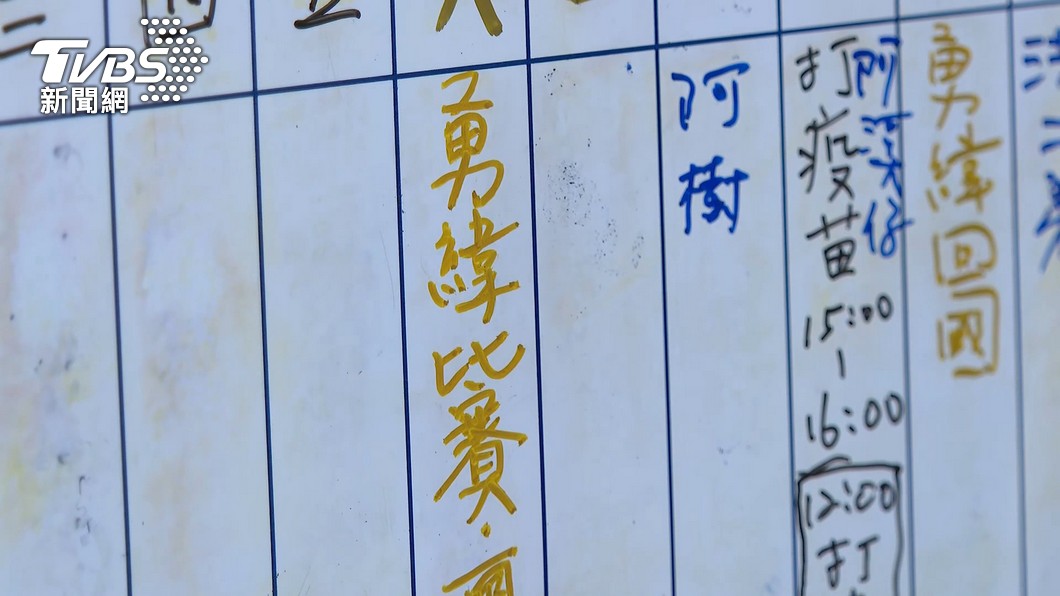 TVBS
新聞網
勇緯比賽.
阿樹
打疫苗
15:00
-
16:00
12:00
打
阿溪仔
勇緯回國